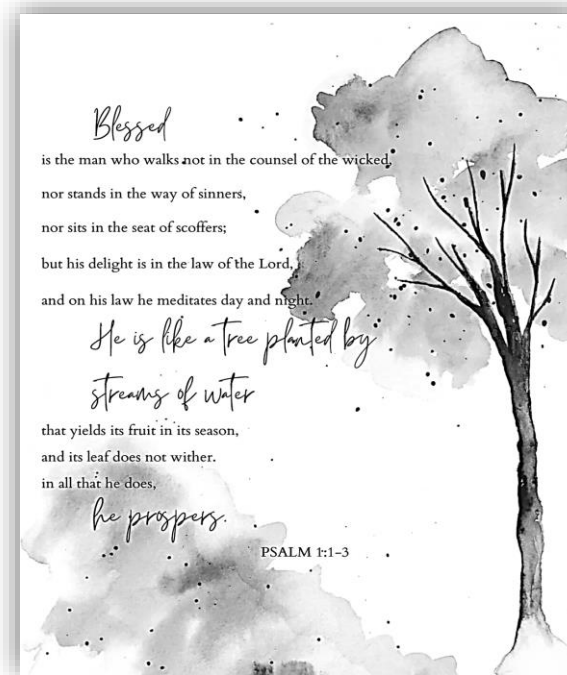 Blessed
is the man who walks not in the counsel of the wicked,
nor stands in the way of sinners,
nor sits in the seat of scoffers;
but his delight is in the law of the Lord,
and on his law he meditates day and night.
He is like a tree planted by
streams of water
that yields its fruit in its season,
and its leaf does not wither.
in all that he does,
he prospers.
PSALM 1:1-3